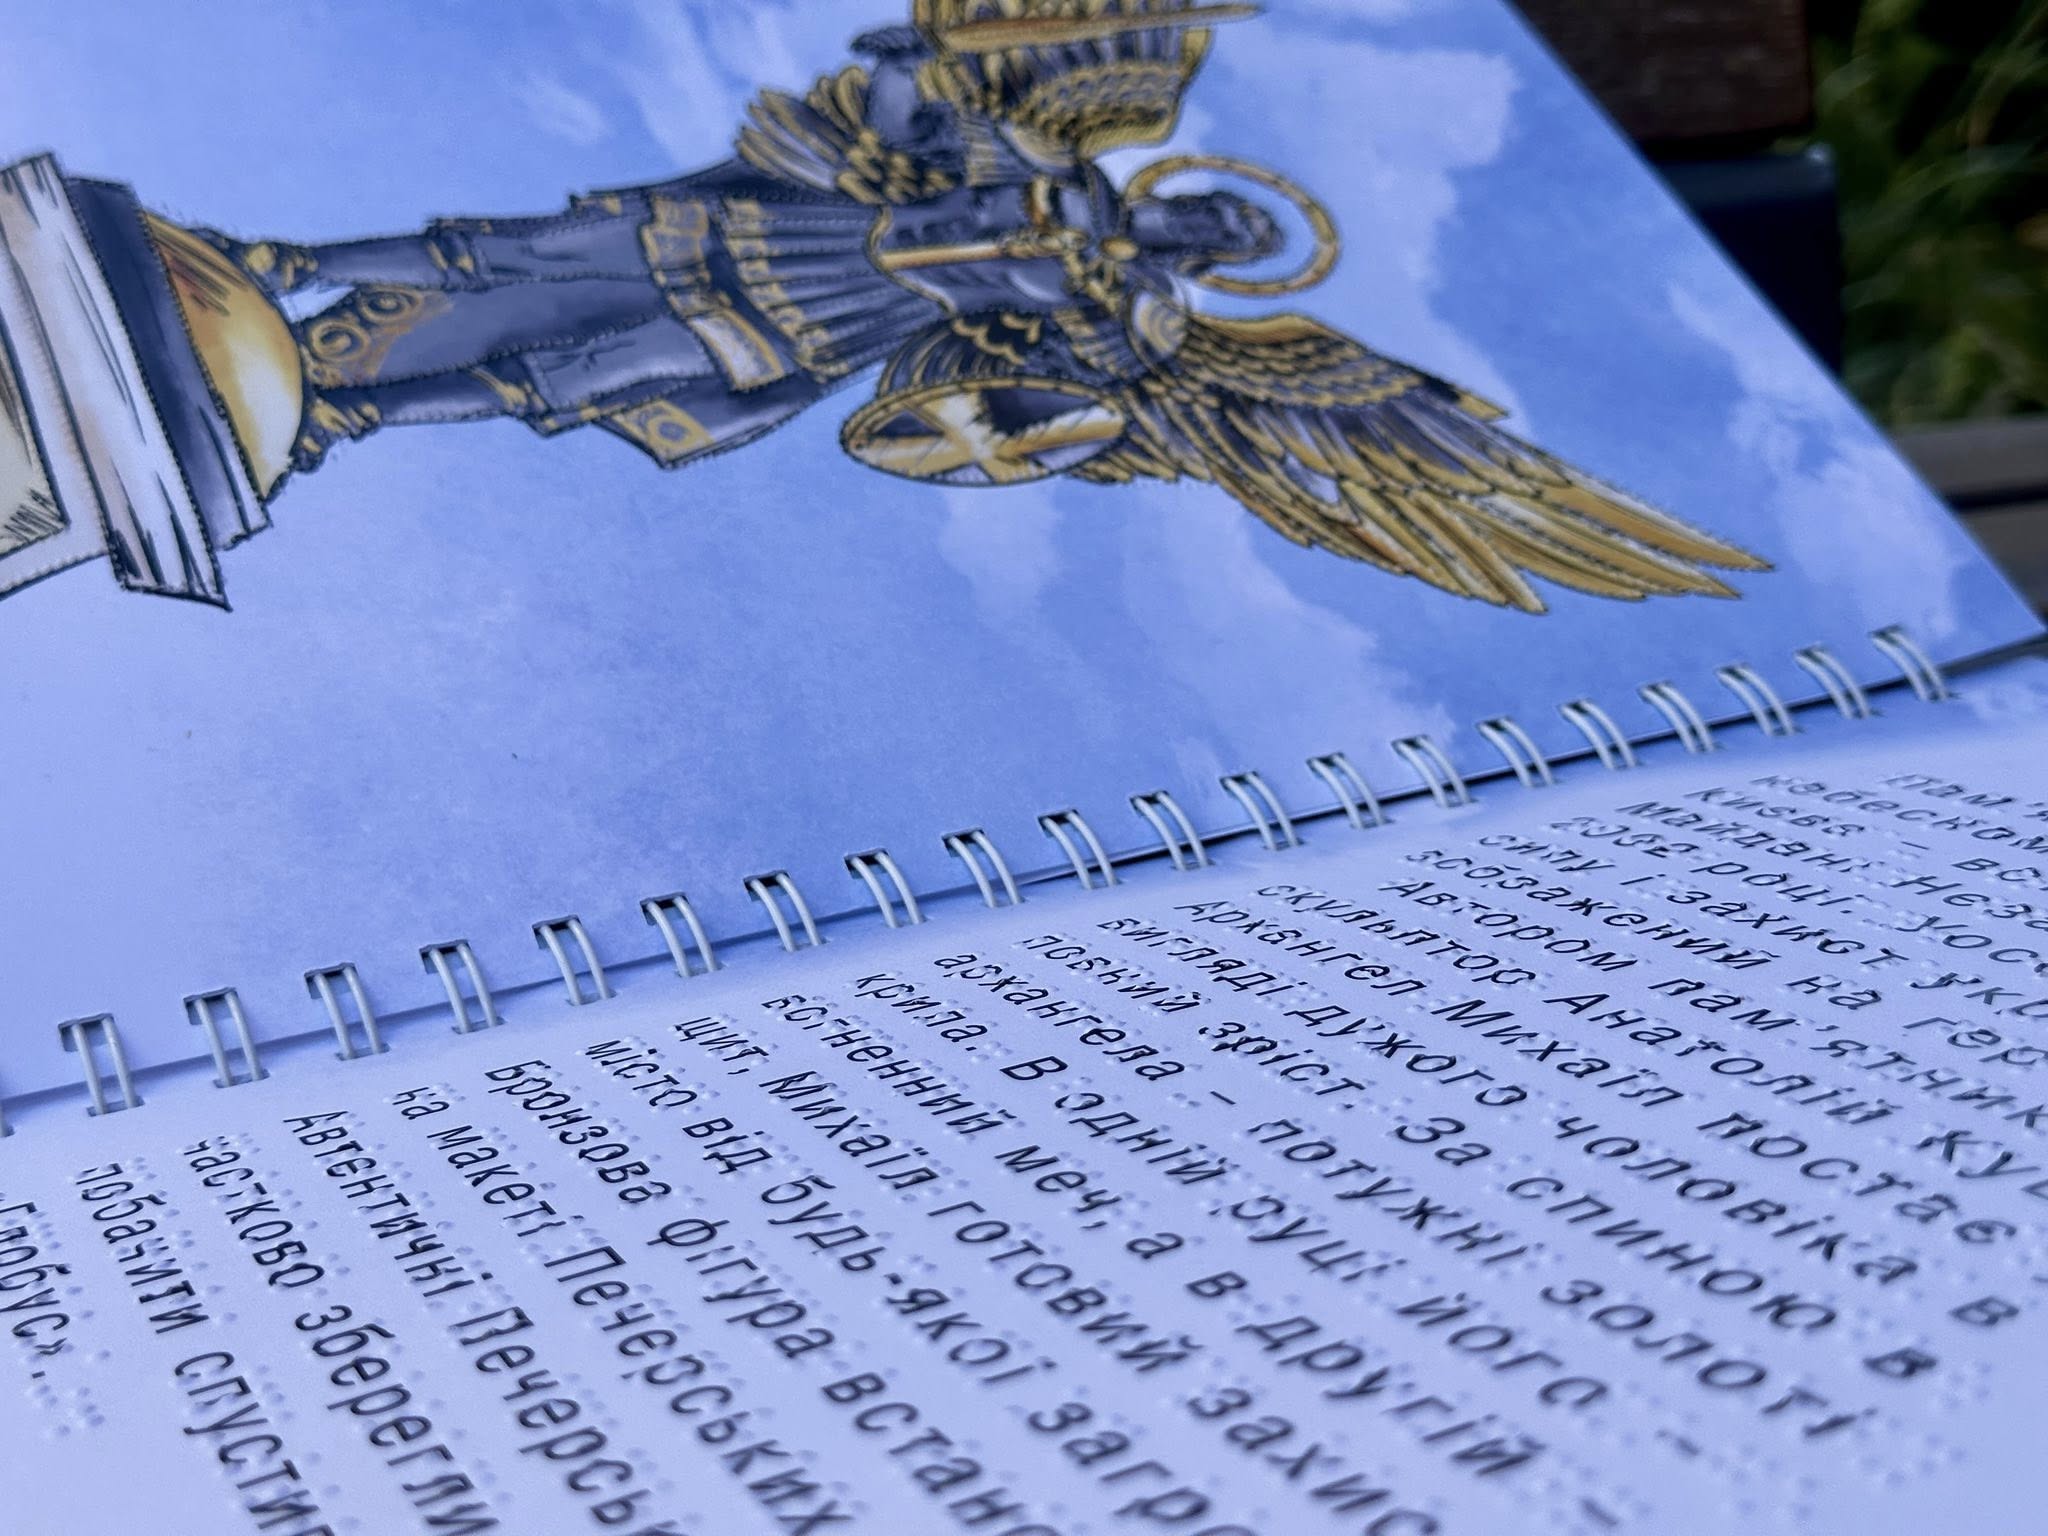 Пам'я
небеском
Києва – вс
Майдані Неза
2002 році. Уосо
силу і захист Укр
зображений на гер
Автором пам'ятник
скульптор Анатолій Кущ
Архангел Михаїл постає в
вигляді дужого чоловіка в
повний зріст. За спиною в
архангела – потужні золоті
крила. В одній руці його –
вогненний меч, а в другій –
щит, Михаїл готовий захис
місто від будь-якої загро
Бронзова фігура встано
на макеті Печерських
Автентичні Печерсь
частково зберегли
побачити спустив
«Глобус».